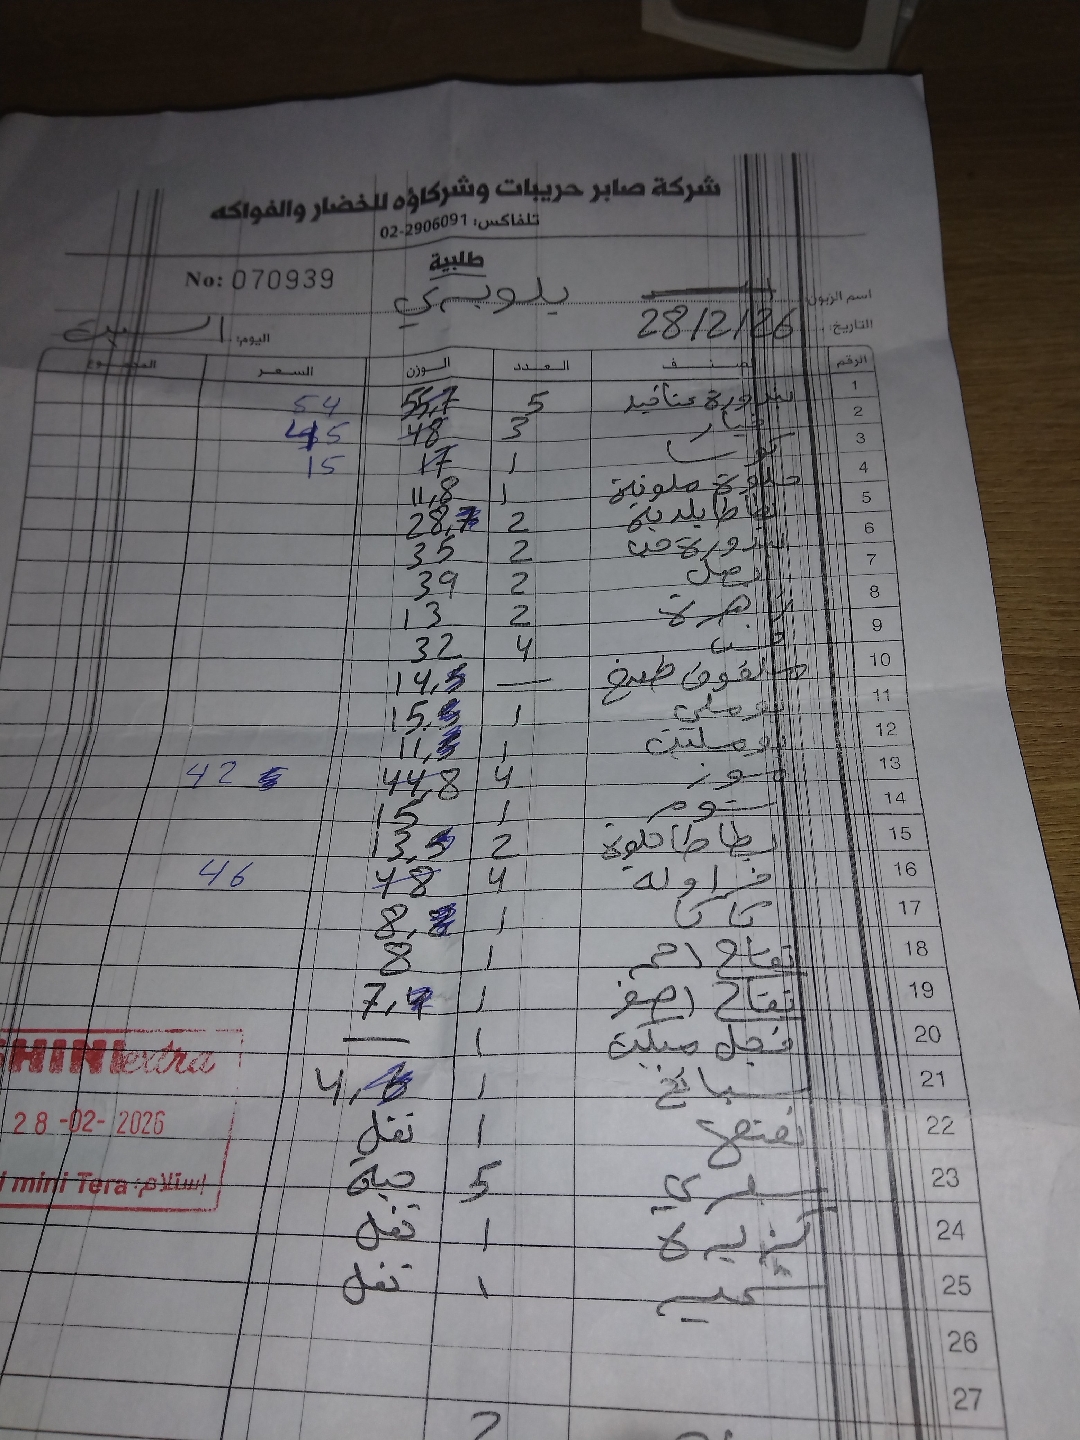 شركة صابر حريبات وشركاؤه للخضار والفواكه
تلفاكس: 02-2906091
طلبية
No: 070939
اسم الزبون:
التاريخ: 28/2/26
اليوم: السبت
الرقم الصنف العدد الوزن السعر المجموع
1 بندورة عناقيد 5 55,7 54
2 خيار 3 48 45
3 كوسا 1 17 15
4 حلوة ملونة 1 11,8
5 بطاطا بلدية 2 28,7
6 بندورة حب 2 35
7 بصل 2 39
8 زهرة 2 13
9 4 32
10 ملفوف طبيخ — 14,5
11 بوملي 1 15,5
12 1 11,5
13 موز 4 44,8 42
14 ثوم 1 15
15 بطاطا حلوة 2 13,5
16 فراولة 4 48 46
17 كاكا 1 8,
18 تفاح احمر 1 8
19 تفاح اصفر 1 7,4
20 فجل 1 —
21 سبانخ 1 4,
22 نعنع 1 نقل
23 سلري 5 حبة
24 كزبرة 1 نقل
25 1 نقل
26
27
extra
28-02-2026
mini Tera استلام: